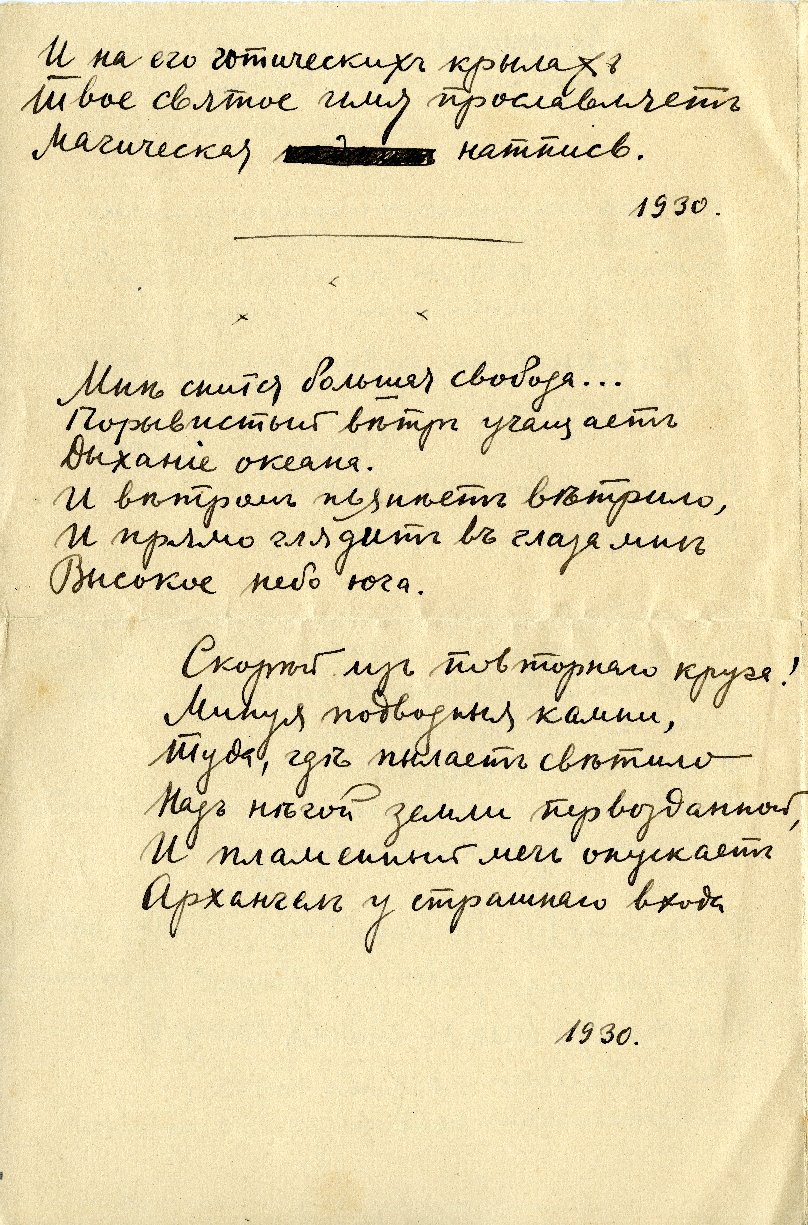 И на его готическихъ крылахъ
Твое святое имя прославляетъ
Магическая надпись.
1930.
Мнѣ снится большая свобода...
Порывистый вѣтръ учащаетъ
Дыханіе океана.
И вѣтромъ пьянѣетъ вѣтрило,
И прямо глядитъ въ глаза мнѣ
Высокое небо юга.
Скорый изъ повторнаго круга!
Минуя подводныя камни,
Туда, гдѣ пылаетъ свѣтило
Надъ нѣгой земли первозданной,
И пламенный мечъ опускаетъ
Архангелъ у страшнаго входа
1930.